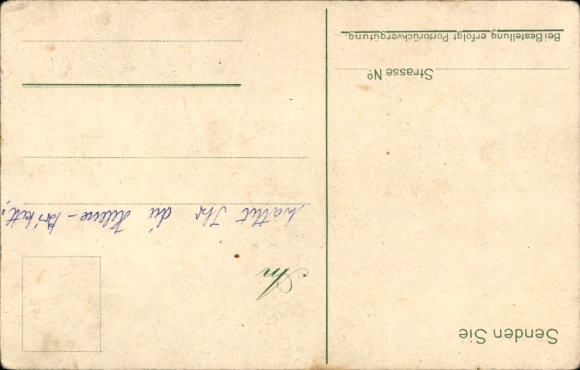 Senden Sie
Strasse No
Bei Bestellung erfolgt Portorückvergütung.
An
hattet Ihr die Helene-